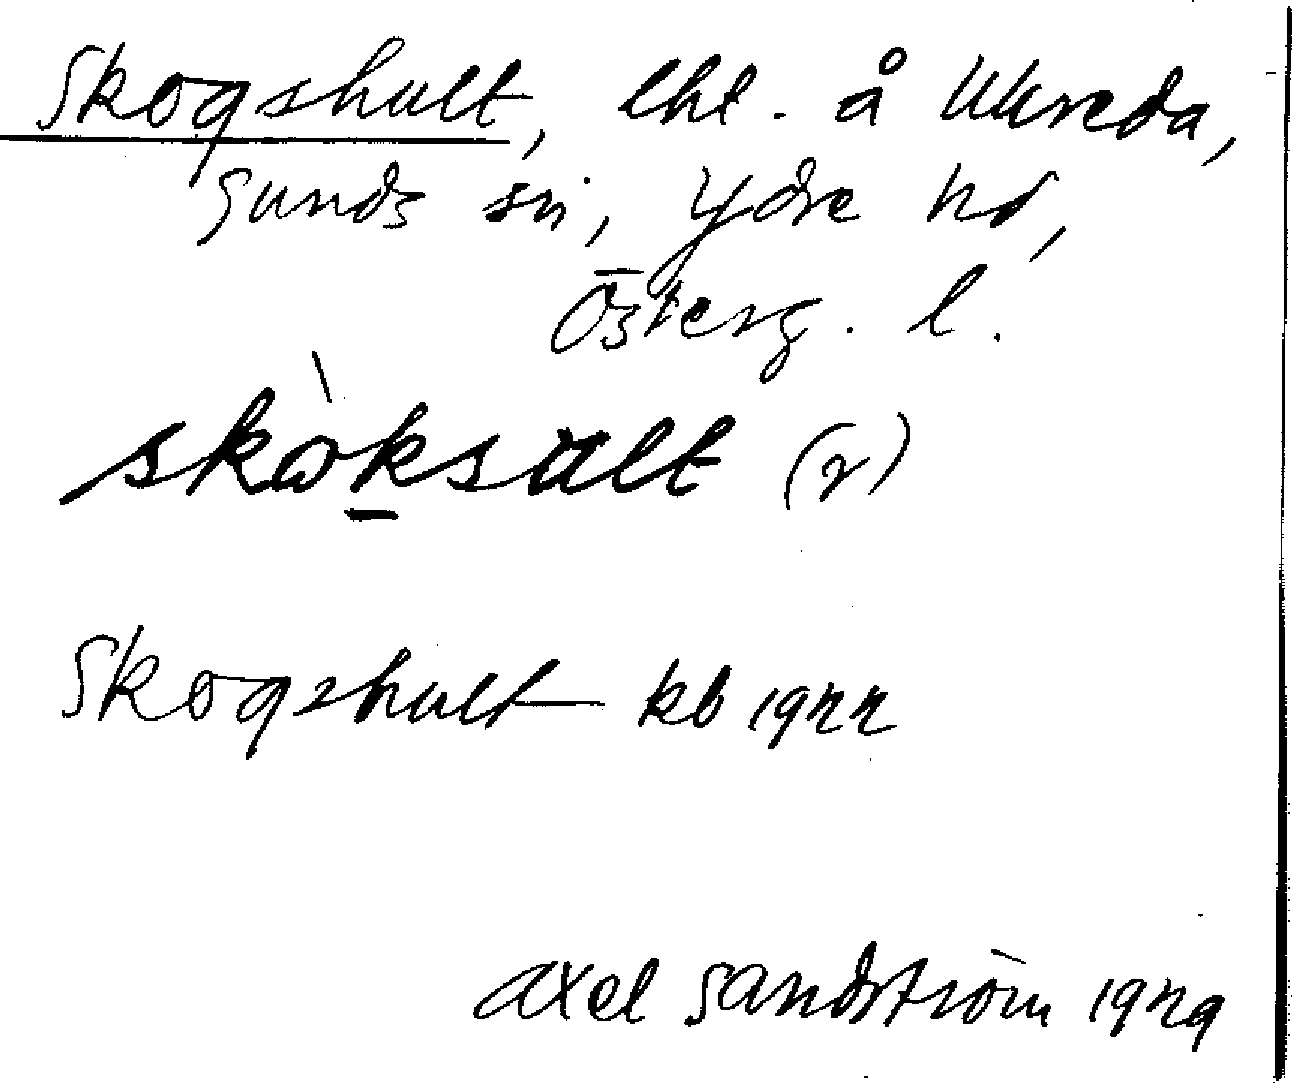 Skogshult, lht. å Ukreda,
Sunds sn, Ydre hd,
Österg. l.
skòksult (2)
Skogshult kb 1922
Axel Sandström 1929